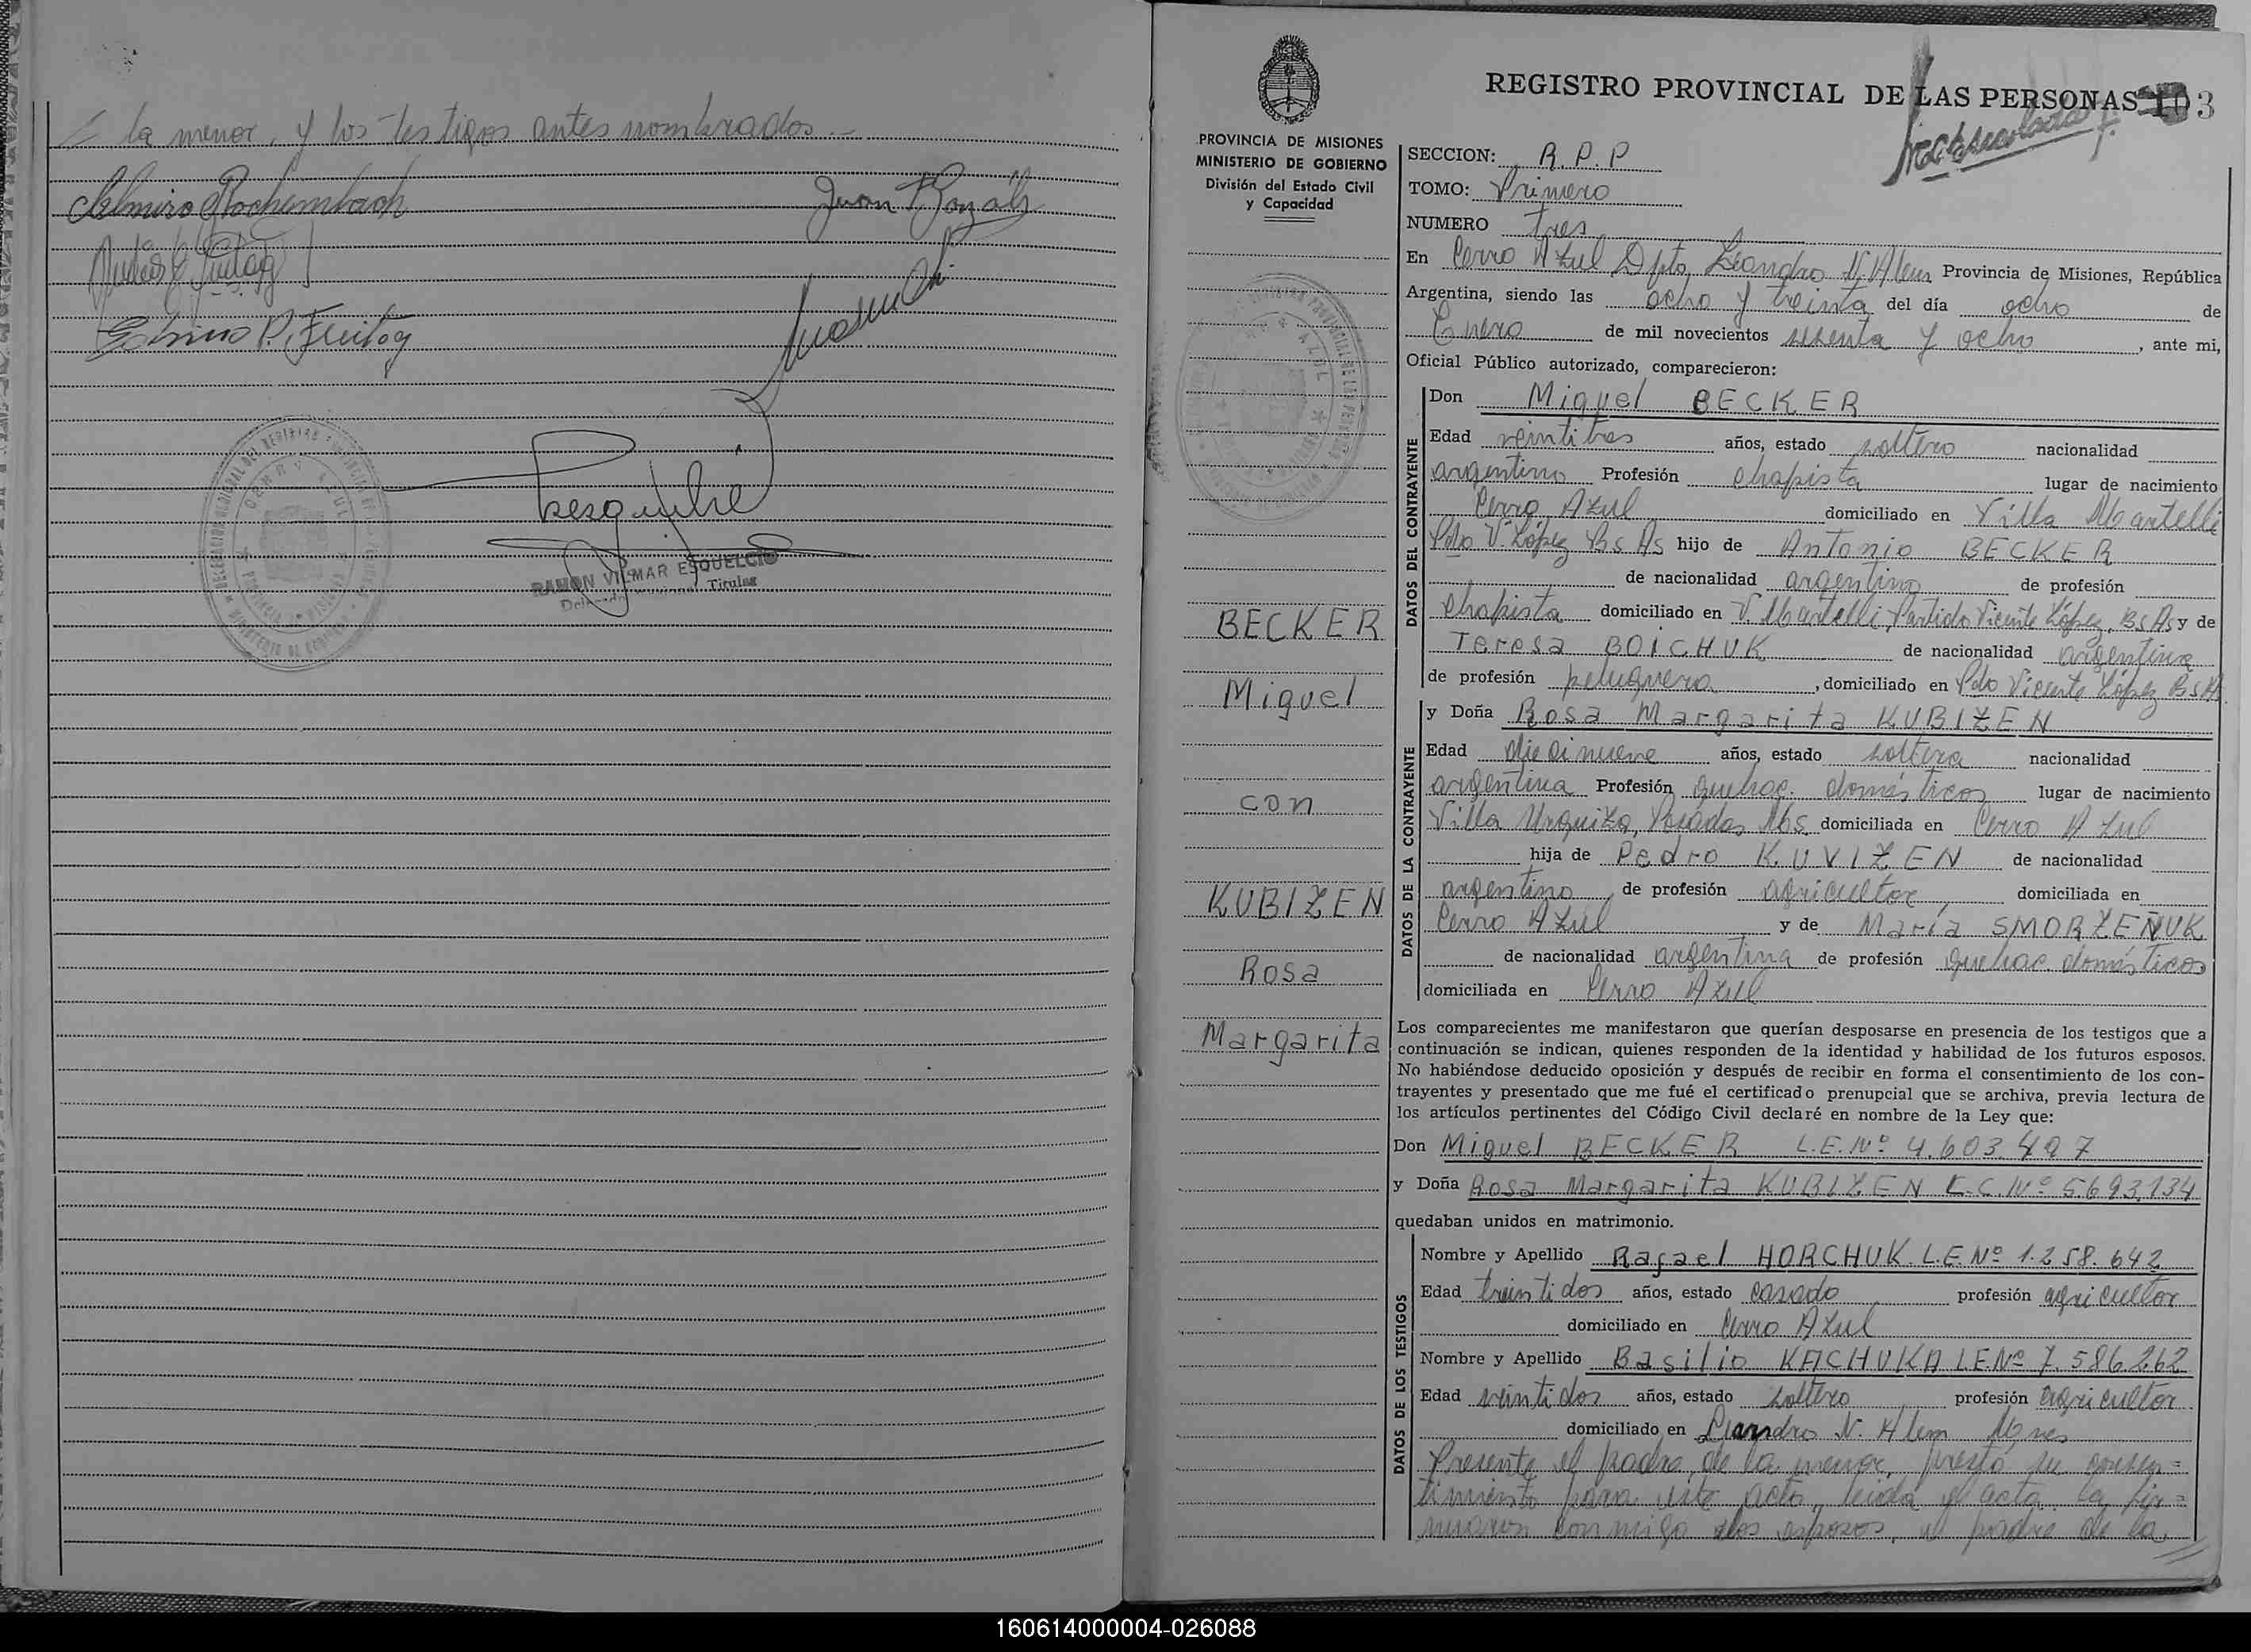 = la menor, y los testigos antes nombrados.-
Almiro Rochembach
Juan
Freitag
P. Freitag
Esquelcio
RAMON VILMAR ESQUELCIO
Titular
REGISTRO PROVINCIAL DE LAS PERSONAS
103
PROVINCIA DE MISIONES
MINISTERIO DE GOBIERNO
División del Estado Civil
y Capacidad
SECCION: R.P.P
TOMO: Primero
NUMERO tres
En Cerro Azul Dpto Leandro N. Alem Provincia de Misiones, República
Argentina, siendo las ocho y treinta del día ocho de
Enero de mil novecientos sesenta y ocho, ante mi,
Oficial Público autorizado, comparecieron:
DATOS DEL CONTRAYENTE
Don Miguel BECKER
Edad veintitres años, estado soltero nacionalidad
argentino Profesión chapista lugar de nacimiento
Cerro Azul domiciliado en Villa Martelli
Pdo V. López Bs As hijo de Antonio BECKER
de nacionalidad argentino de profesión
chapista domiciliado en V. Martelli, Partido Vicente López, Bs As y de
Teresa BOICHUK de nacionalidad argentina
de profesión peluquera, domiciliado en Pdo Vicente López Bs As
BECKER
Miguel
con
KUBIZEN
Rosa
Margarita
DATOS DE LA CONTRAYENTE
y Doña Rosa Margarita KUBIZEN
Edad diecinueve años, estado soltera nacionalidad
argentina Profesión quehac. domésticos lugar de nacimiento
Villa Urquiza, Posadas Mbs domiciliada en Cerro Azul
hija de Pedro KUVIZEN de nacionalidad
argentino, de profesión agricultor, domiciliada en
Cerro Azul y de María SMORZEÑUK
de nacionalidad argentina de profesión quehac. domésticos
domiciliada en Cerro Azul
Los comparecientes me manifestaron que querían desposarse en presencia de los testigos que a
continuación se indican, quienes responden de la identidad y habilidad de los futuros esposos.
No habiéndose deducido oposición y después de recibir en forma el consentimiento de los con-
trayentes y presentado que me fué el certificado prenupcial que se archiva, previa lectura de
los artículos pertinentes del Código Civil declaré en nombre de la Ley que:
Don Miguel BECKER L.E.Nº 4.603.497
y Doña Rosa Margarita KUBIZEN L.C.Nº 5.693.134
quedaban unidos en matrimonio.
DATOS DE LOS TESTIGOS
Nombre y Apellido Rafael HORCHUK. L.E. Nº 1.258.642
Edad treintidos años, estado casado profesión agricultor
domiciliado en Cerro Azul
Nombre y Apellido Basilio KACHUKA LE Nº 7.586.262
Edad veintidos años, estado soltero profesión agricultor
domiciliado en Leandro N. Alem Mnes
Presente el padre de la menor, prestó su consen=
timiento para este acto, leída el acta, la fir=
maron conmigo los esposos, el padre de la
160614000004-026088